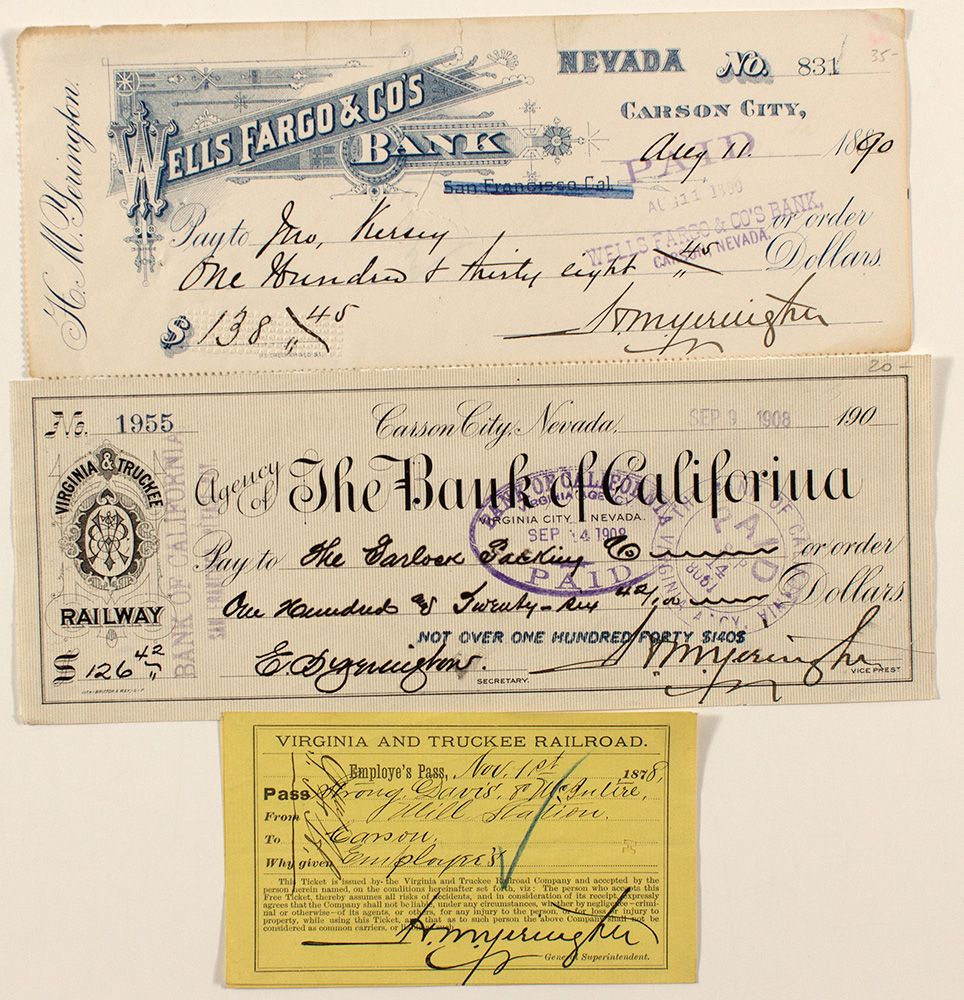 35-
NEVADA No. 831
H. M. Yerington.
WELLS FARGO & CO'S BANK
CARSON CITY,
Aug 11. 1890
San Francisco Cal
PAID
AUG 11 1890
WELLS FARGO & CO'S BANK,
CARSON, NEVADA.
Pay to Jno, Kersey or order
One Hundred & thirty eight 45 Dollars.
$ 138 45
H M Yerington
20-
No. 1955
Carson City, Nevada, SEP 9 1908 190
VIRGINIA & TRUCKEE
RAILWAY
BANK OF CALIFORNIA
Agency of The Bank of California
VIRGINIA CITY, NEVADA.
BANK OF CALIFORNIA
VIRGINIA AGENCY
SEP 14 1908
PAID
PAID
14
Pay to The Garlock Packing Co or order
One Hundred & Twenty-six 42/100 Dollars.
NOT OVER ONE HUNDRED FORTY $140$
$ 126 42
E. B. Yerington.
SECRETARY.
H M Yerington
VICE PREST
VIRGINIA AND TRUCKEE RAILROAD.
Employe's Pass, Nov. 1st 1878,
Pass Strong, Davis, & McIntire,
From Mill Station,
To Carson,
Why given Employe's
This Ticket is issued by the Virginia and Truckee Railroad Company and accepted by the
person herein named, on the conditions hereinafter set forth, viz: The person who accepts this
Free Ticket, thereby assumes all risks of accidents, and in consideration of its receipt, expressly
agrees that the Company shall not be liable, under any circumstances, whether by negligence—crimi-
nal or otherwise—of its agents, or others, for any injury to the person, or for loss or injury to
property, while using this Ticket, and that as to such person the above Company shall not be
considered as common carriers, or liable as such.
H. M. Yerington
General Superintendent.